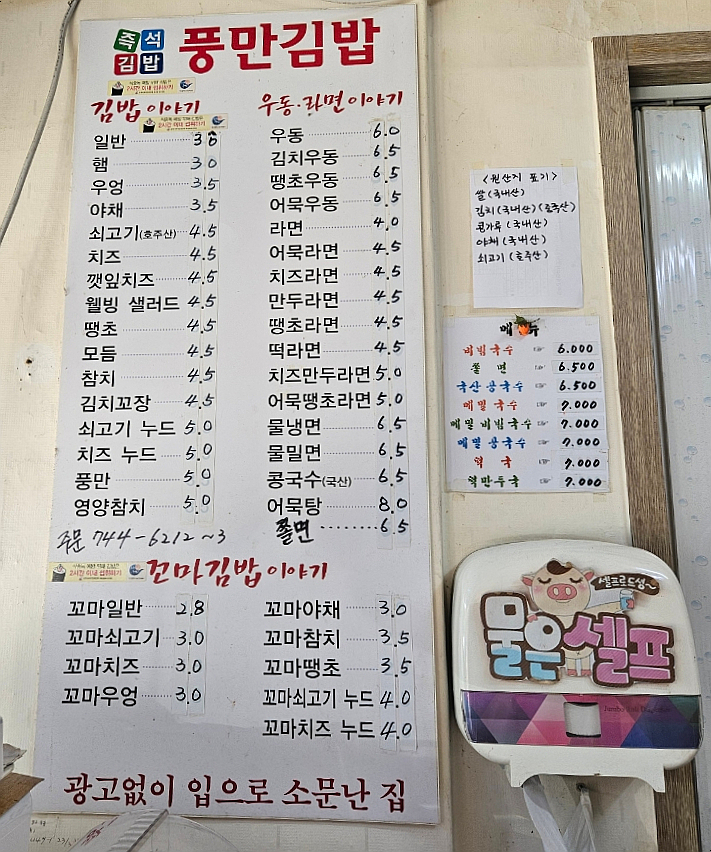 즉석 김밥 풍만김밥
김밥 이야기
2시간 이내 섭취하기
2시간 이내 섭취하기
일반 3.0
햄 3.0
우엉 3.5
야채 3.5
쇠고기(호주산) 4.5
치즈 4.5
깻잎치즈 4.5
웰빙 샐러드 4.5
땡초 4.5
모듬 4.5
참치 4.5
김치꼬장 4.5
쇠고기 누드 5.0
치즈 누드 5.0
풍만 5.0
영양참치 5.0
주문 744-6212~3
우동·라면 이야기
우동 6.0
김치우동 6.5
땡초우동 6.5
어묵우동 6.5
라면 4.0
어묵라면 4.5
치즈라면 4.5
만두라면 4.5
땡초라면 4.5
떡라면 4.5
치즈만두라면 5.0
어묵땡초라면 5.0
물냉면 6.5
물밀면 6.5
콩국수(국산) 6.5
어묵탕 8.0
쫄면 6.5
2시간 이내 섭취하기
꼬마김밥 이야기
꼬마일반 2.8
꼬마쇠고기 3.0
꼬마치즈 3.0
꼬마우엉 3.0
꼬마야채 3.0
꼬마참치 3.5
꼬마땡초 3.5
꼬마쇠고기 누드 4.0
꼬마치즈 누드 4.0
광고없이 입으로 소문난 집
<원산지 표기>
쌀(국내산)
김치(국내산)(호주산)
콩가루(국내산)
야채(국내산)
쇠고기(호주산)
메뉴
비빔국수 6.000
쫄 면 6.500
국산 콩국수 6.500
메밀 국수 7.000
메밀 비빔국수 7.000
메밀 콩국수 7.000
떡 국 7.000
떡만두국 7.000
셀프로드셩~
물은 셀프